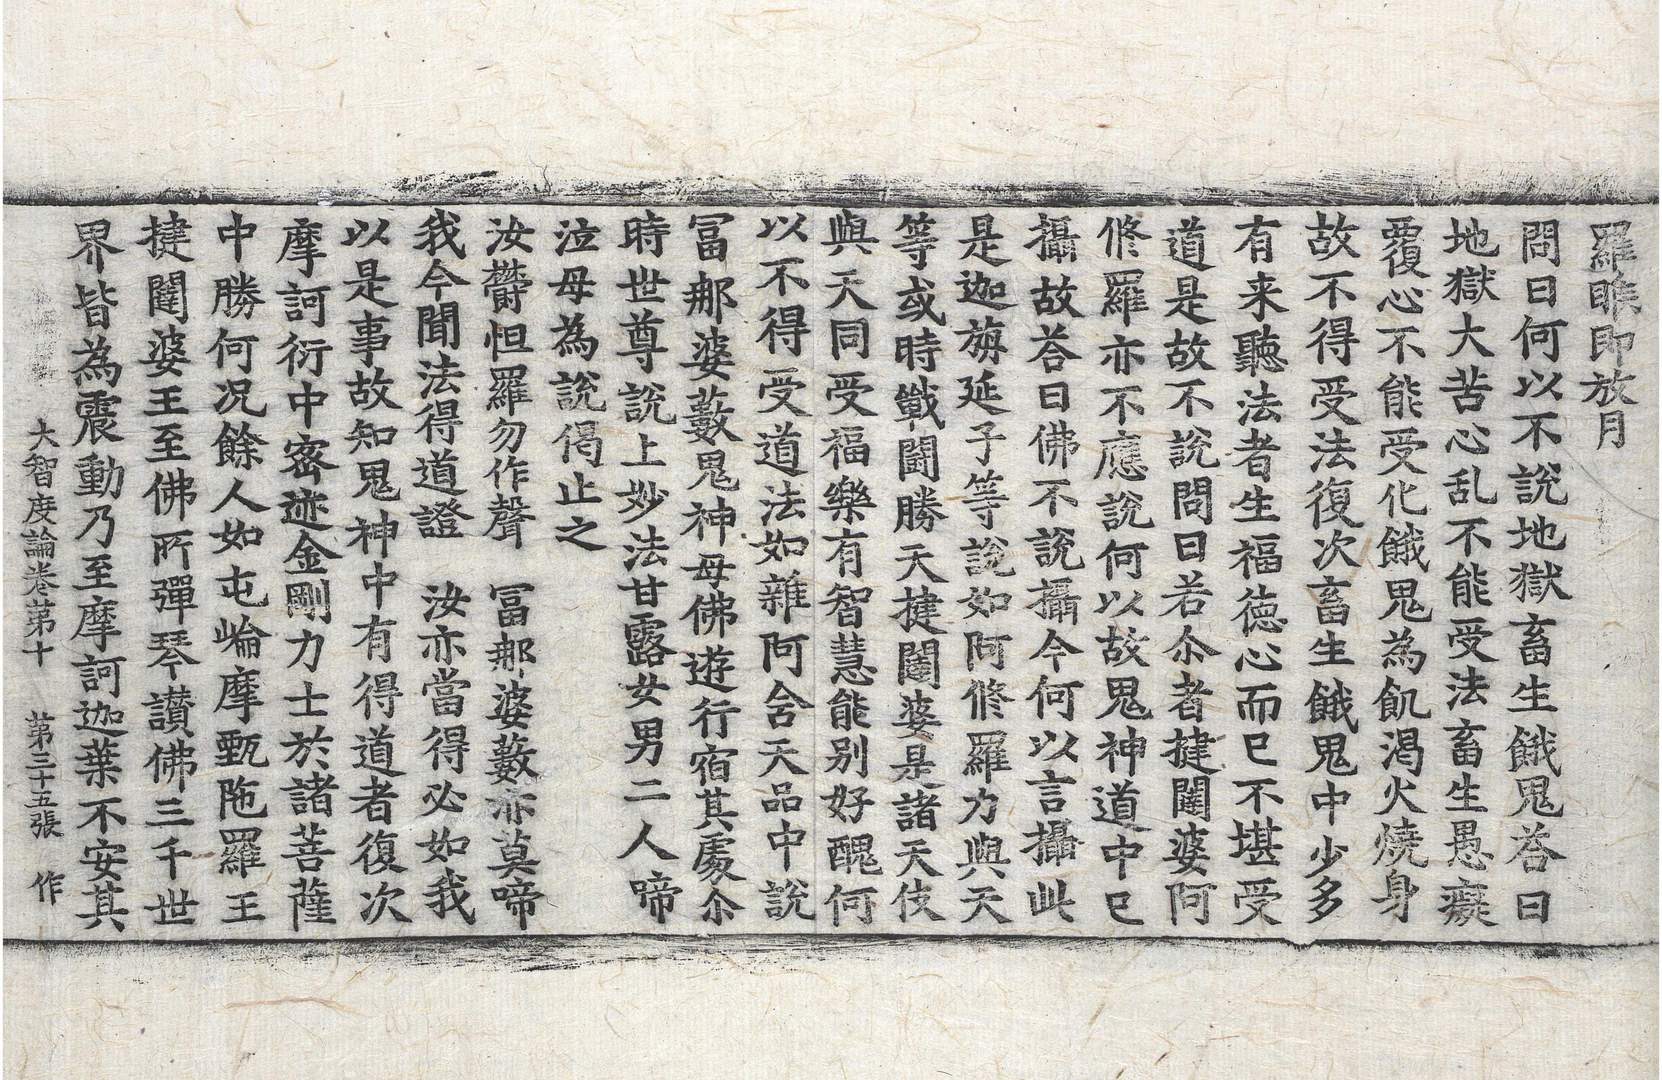 羅睺即放月
問曰何以不說地獄畜生餓鬼荅曰
地獄大苦心乱不能受法畜生愚癡
覆心不能受化餓鬼為飢渴火燒身
故不得受法復次畜生餓鬼中少多
有来聽法者生福徳心而已不堪受
道是故不說問曰若尒者揵闥婆阿
修羅亦不應說何以故鬼神道中已
攝故荅曰佛不說攝今何以言攝此
是迦旃延子等說如阿修羅力與天
等或時戰鬪勝天揵闥婆是諸天伎
與天同受福樂有智慧能別好醜何
以不得受道法如雜阿含天品中說
冨那婆藪鬼神母佛遊行宿其處尒
時世尊說上妙法甘露女男二人啼
泣母為說偈止之
汝欝怛羅勿作聲　冨那婆藪亦莫啼
我今聞法得道證　汝亦當得必如我
以是事故知鬼神中有得道者復次
摩訶衍中密迹金剛力士於諸菩薩
中勝何况餘人如屯崘摩甄陁羅王
揵闥婆王至佛所彈琴讃佛三千世
界皆為震動乃至摩訶迦葉不安其
大智度論卷第十　第三十五張　作